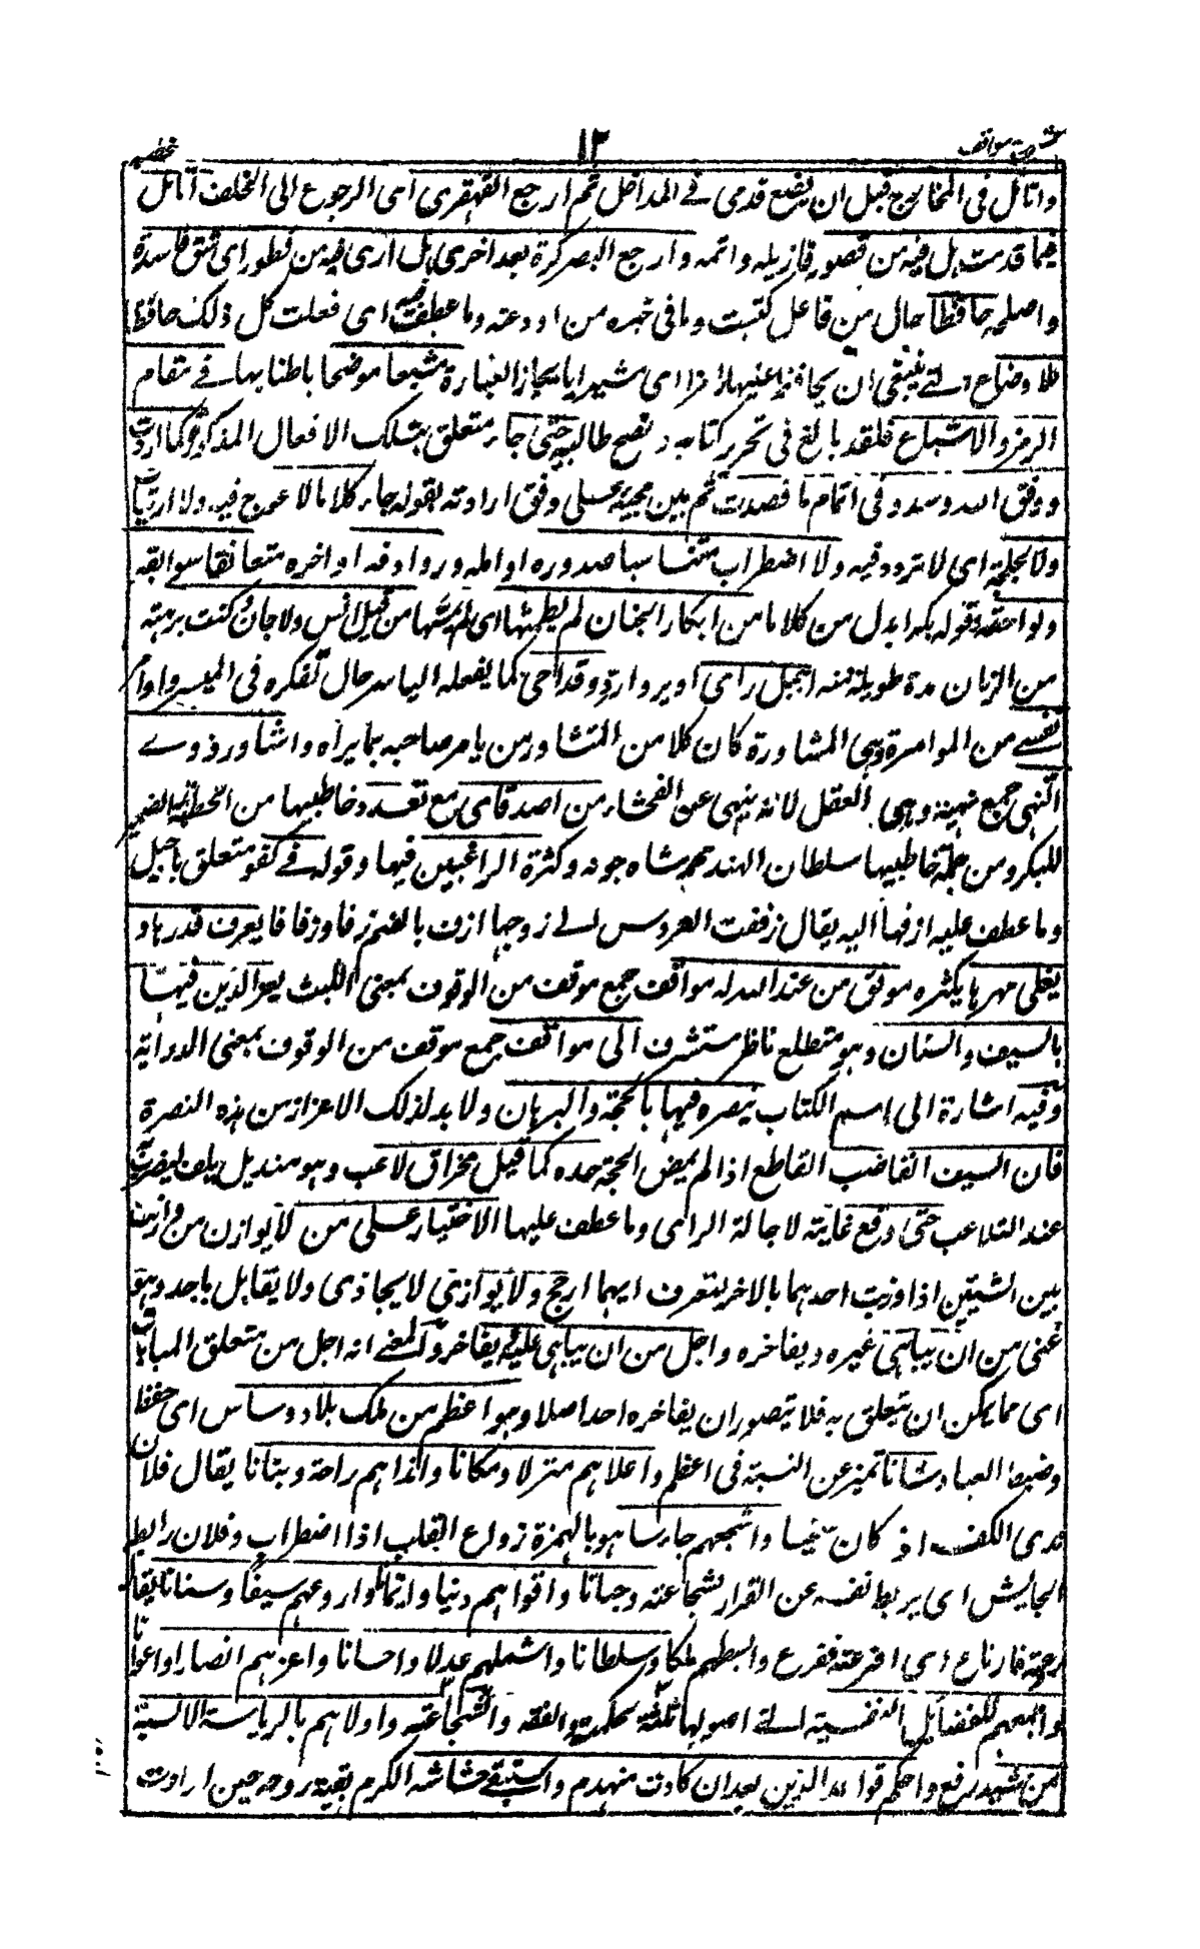 شرح مواقف ١٢ خطبه
واتأمل فى المخارج قبل ان يضع قدمى فے المداخل ثم ارجع القهقرى اى الرجوع الى الخلف اتأمل
فيما قدمت هل فيه من قصور فازيله واتمه وارجع البصر كرة بعد اخرى هل ارى فيه من فطور اى شق فاسده
واصلحه حافظا حال من فاعل كتبت وما فى خبره من اودعته وما عطف عليه اى فعلت كل ذلك حافظا
للاوضاع التے ينبغى ان يحافظ عليها رامزا اى مشيرا بايجاز العبارة مشبعا موضحا باطنابها فے مقام
الرمز والاشباع فلقد بالغ فى تحرير كتابه ونصح طالبيه حتى جاء متعلق بتلك الافعال المذكورة كما اردت
ووفق الله وسدد فى اتمام ما قصدت ثم بين مجيئه على وفق ارادته بقوله جاء كلاما لا عوج فيه ولا ارتياب
ولا لجلجة اى لا تردد فيه ولا اضطراب متناسبا صدوره اوائله وروادفه اواخره متعانقا سوابقه
ولواحقه وقوله بكرا بدل من كلاما من ابكار الجنان لم يطمثها اى لم يمسها من قبل انس ولا جان كنت برهة
من الزمان مدة طويلة منه اجيل رأى اويروارده وقداحى كما يفعله الياسر حال تفكره فى الميسر واوامر
نفسے من الموامرة وهى المشاورة كان كلا من المتشاورين يامر صاحبه بما يراه واشاور ذوے
النهى جمع نهية وهى العقل لانه ينهى عن الفحشاء من اصدقائى مع تعدد خاطبيها من الخطبة الضمير
للبكر ومن جملة خاطبيها سلطان الهند محمد شاه جونه وكثرة الراغبين فيها وقوله فے كفو متعلق باجيل
وما عطف عليه ازفها اليه يقال زففت العروس الے زوجها ازف بالضم زفا وزفافا يعرف قدرها و
يغلى مهرها يكثره موفق من عند الله له مواقف جمع موقف من الوقوف بمعنى اللبث يعز الدين فيها
بالسيف والسنان وهو متطلع ناظر مستشرف الى مواقف جمع موقف من الوقوف بمعنى الدراية
وفيه اشارة الى اسم الكتاب ينصره فيها بالحجة والبرهان ولا بد لذلك الاعزاز من هذه النصرة
فان السيف القاضب القاطع اذا لم يمض الحجة حده كما قيل مخراق لاعب وهو منديل يلف ليضرب به
عند التلاعب حتى وقع غاية لاجالة الرأى وما عطف عليها الاختيار على من لا يوازن من وازنت
بين الشيئين اذا وزنت احدهما بالاخر لتعرف ايهما ارجح ولا يوازى لا يحاذى ولا يقابل باحد وهو
غنى من ان يباهى غيره ويفاخره واجل من ان يباهى عليه يفاخر والمعنے انه اجل من متعلق المباهاة
اى مما يمكن ان يتعلق به فلا يتصور ان يفاخره احد اصلا وهو اعظم من ملك بلاد وساس اى حفظ
وضبط العباد شانا تميز عن النسبة فى اعظم واعلاهم منزلا ومكانا وانداهم راحة وبنانا يقال فلان
ندى الكف اذ كان سخيا واشجعهم جاشا هو بالهمزة زواع القلب اذا اضطراب وفلان رابط
الجايش اى يربط نفسه عن القرار بشجاعته وجنانا واقواهم دينا وايمانا واروعهم سيفا وسنانا يقال
رعته فارتاع اى افزعته ففزع وابسطهم ملكا وسلطانا واشملهم عدلا واحسانا واعزهم انصارا واعوانا
واجمعهم للفضائل النفسية التے اصولها ثلثة الحكمة والفقه والشجاعة واولاهم بالرياسة الانسية
من شيد رفع واحكم قواعد الدين بعد ان كادت منهدم واستبقے حشاشة الكرم بقية روحه حين ارادت